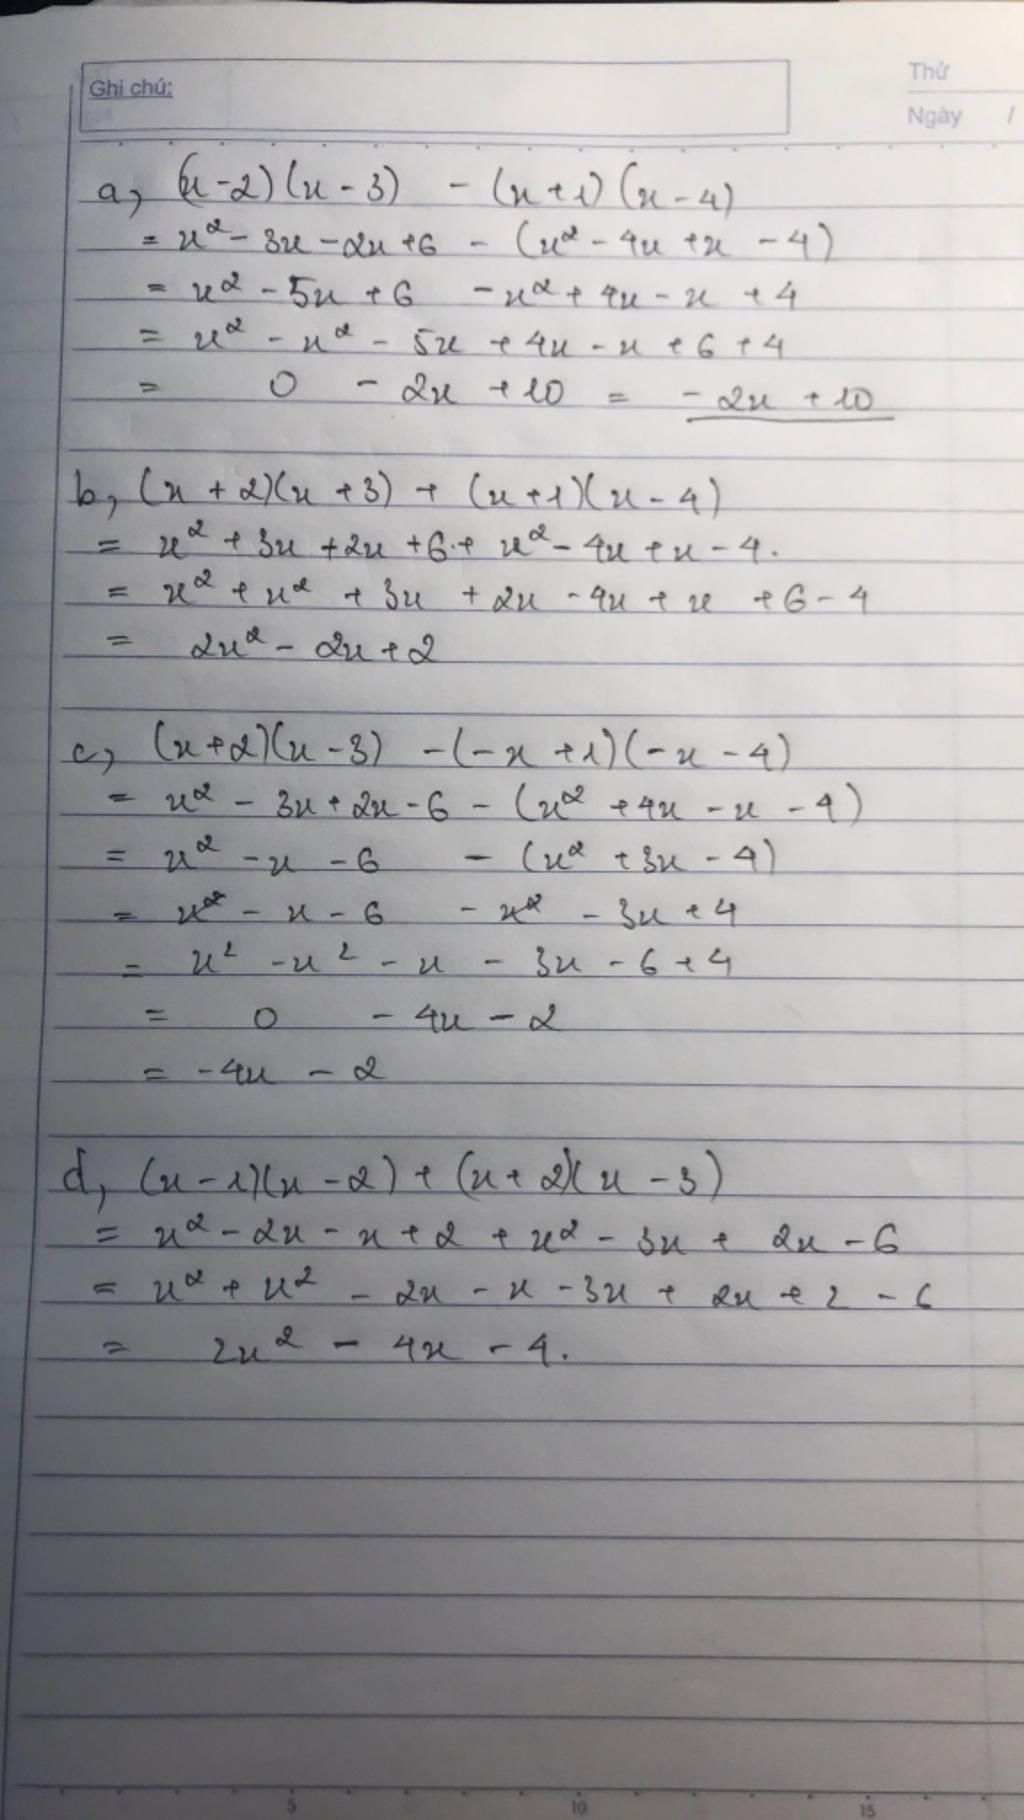 Ghi chú:
Thứ
Ngày /
a, (x-2)(x-3) - (x+1)(x-4)
= x² - 3x - 2x + 6 - (x² - 4x + x - 4)
= x² - 5x + 6 - x² + 4x - x + 4
= x² - x² - 5x + 4x - x + 6 + 4
= 0 - 2x + 10 = - 2x + 10
b, (x + 2)(x + 3) + (x + 1)(x - 4)
= x² + 3x + 2x + 6 + x² - 4x + x - 4.
= x² + x² + 3x + 2x - 4x + x + 6 - 4
= 2x² - 2x + 2
c, (x+2)(x-3) - (-x + 1)(-x - 4)
= x² - 3x + 2x - 6 - (x² + 4x - x - 4)
= x² - x - 6 - (x² + 3x - 4)
= x² - x - 6 - x² - 3x + 4
= x² - x² - x - 3x - 6 + 4
= 0 - 4x - 2
= -4x - 2
d, (x - 1)(x - 2) + (x + 2)(x - 3)
= x² - 2x - x + 2 + x² - 3x + 2x - 6
= x² + x² - 2x - x - 3x + 2x + 2 - 6
= 2x² - 4x - 4.
5 10 15